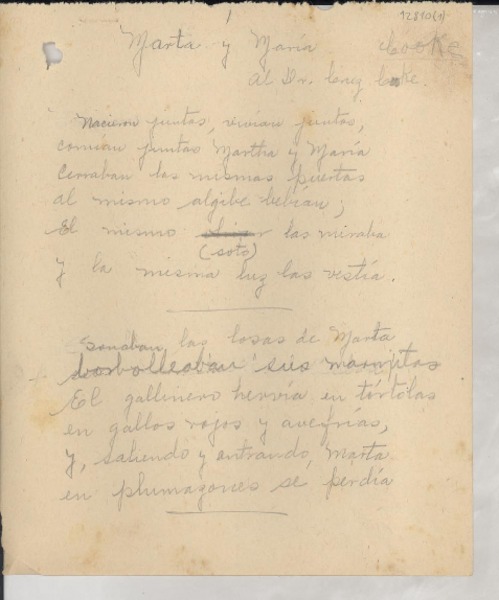 1 12810(1)
Marta y María Cook
al Dr. Cruz Coke.
Nacieron juntas, vivían juntas,
comían juntas Martha y María
Cerraban las mismas puertas
al mismo algibe bebían;
El mismo las miraba
(soto)
y la misma luz las vestía.
Sonaban las losas de Marta
borbolleaban sus marmitas
El gallinero hervía en tórtolas
en gallos rojos y avefrías,
y, saliendo y entrando, Marta
en plumazones se perdía